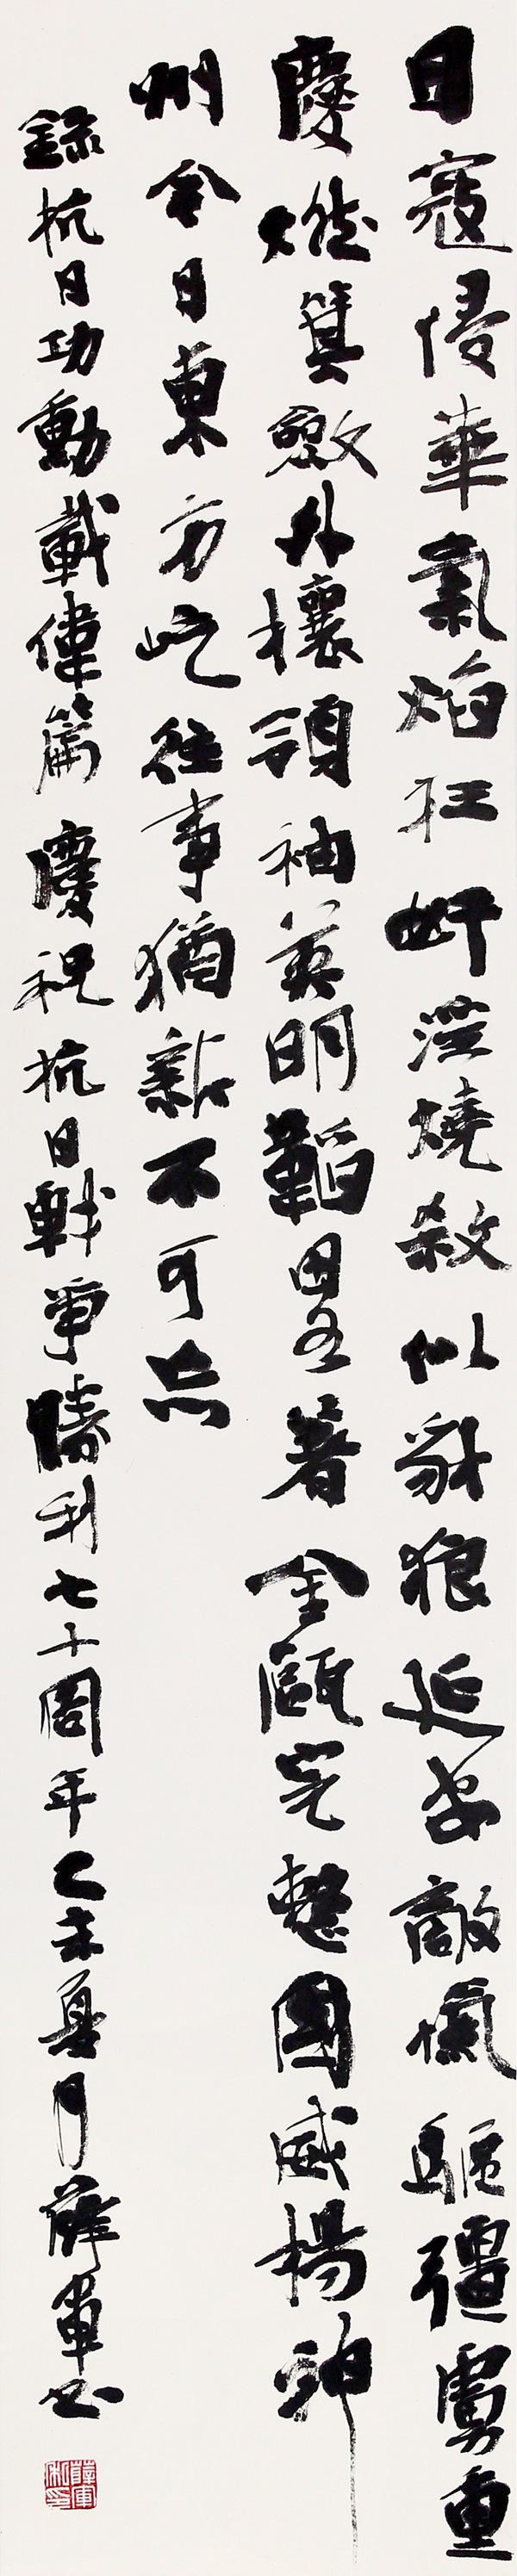 日寇侵華氣焰狂奸淫燒殺似豺狼延安敵愾驅彊虜重
慶燃箕斂外攘領袖英明韜畧著金甌完整國威揚神
州今日東方屹往事猶新不可忘
錄抗日功勳載偉篇 慶祝抗日戰爭勝利七十周年乙未夏月薛軍书
薛軍私印